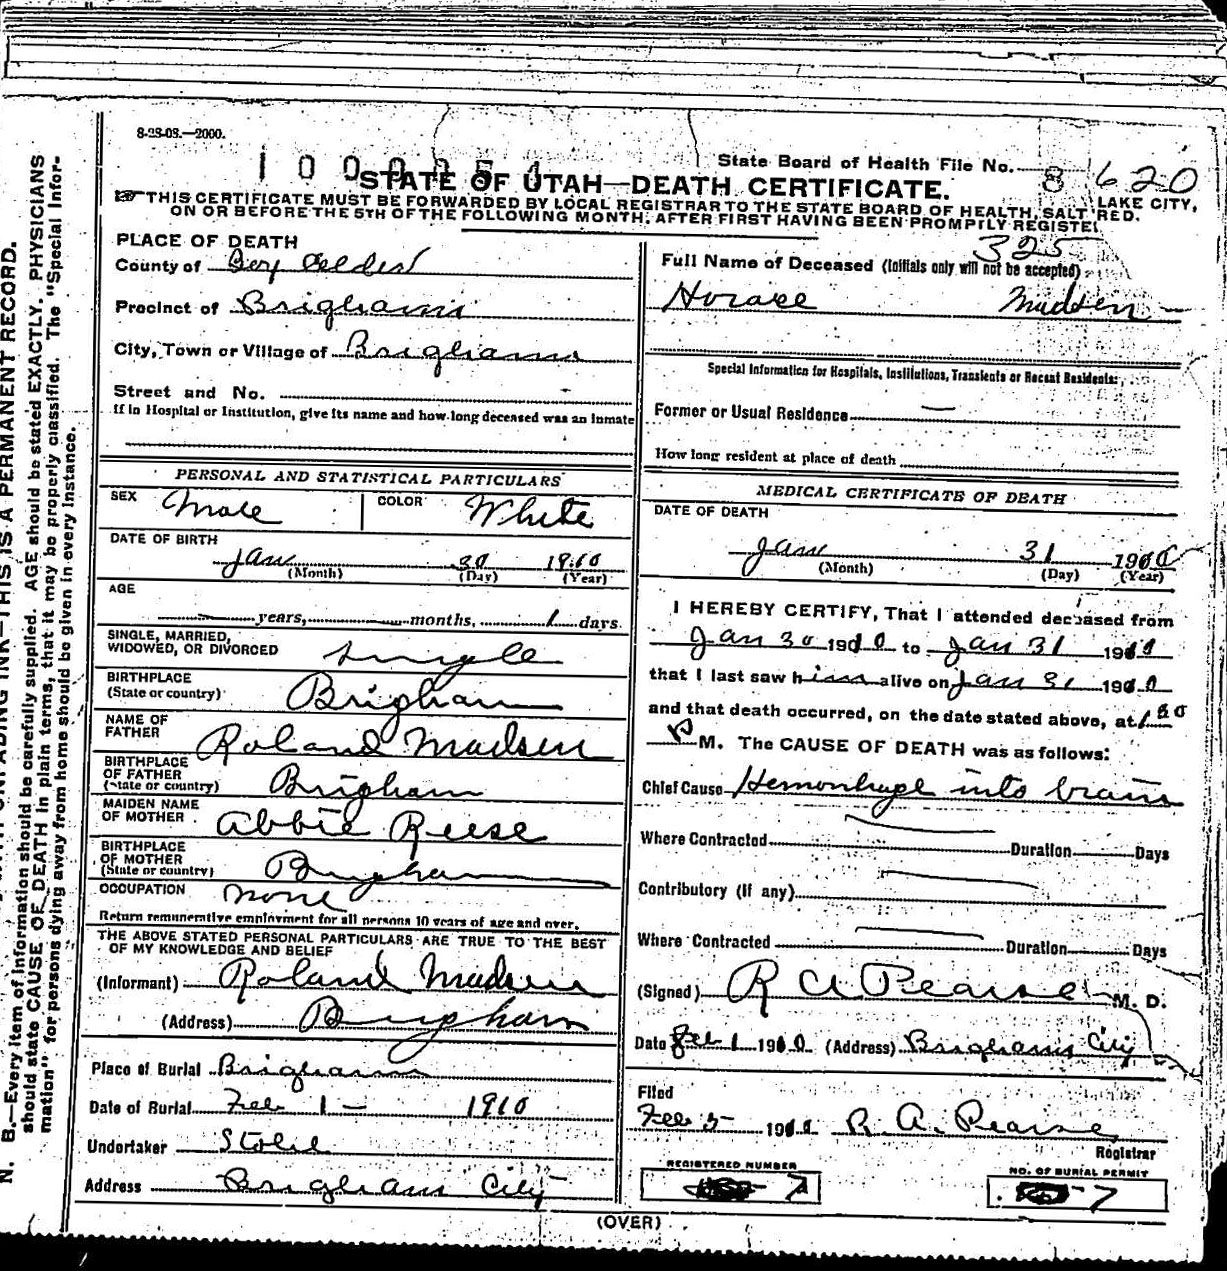 8-28-08.—2000.
1000251
State Board of Health File No. 8 620
STATE OF UTAH—DEATH CERTIFICATE.
THIS CERTIFICATE MUST BE FORWARDED BY LOCAL REGISTRAR TO THE STATE BOARD OF HEALTH, SALT LAKE CITY,
ON OR BEFORE THE 5TH OF THE FOLLOWING MONTH, AFTER FIRST HAVING BEEN PROMPTLY REGISTERED.
325
PLACE OF DEATH
County of Box Elder
Precinct of Brigham
City, Town or Village of Brigham
Street and No. -
If in Hospital or Institution, give its name and how long deceased was an inmate
PERSONAL AND STATISTICAL PARTICULARS
SEX Male COLOR White
DATE OF BIRTH
Jan 30 1910
(Month) (Day) (Year)
AGE
years, months, 1 days.
SINGLE, MARRIED,
WIDOWED, OR DIVORCED Single
BIRTHPLACE
(State or country) Brigham
NAME OF
FATHER Roland Madsen
BIRTHPLACE
OF FATHER
(State or country) Brigham
MAIDEN NAME
OF MOTHER Abbie Reese
BIRTHPLACE
OF MOTHER
(State or country) Brigham
OCCUPATION None
Return remunerative employment for all persons 10 years of age and over.
THE ABOVE STATED PERSONAL PARTICULARS ARE TRUE TO THE BEST
OF MY KNOWLEDGE AND BELIEF
(Informant) Roland Madsen
(Address) Brigham
Place of Burial Brigham
Date of Burial Feb 1 — 1910
Undertaker Stohl
Address Brigham City
Full Name of Deceased (Initials only will not be accepted)
Horace Madsen
Special Information for Hospitals, Institutions, Transients or Recent Residents:
Former or Usual Residence —
How long resident at place of death
MEDICAL CERTIFICATE OF DEATH
DATE OF DEATH
Jan 31 1910
(Month) (Day) (Year)
I HEREBY CERTIFY, That I attended deceased from
Jan 30 1910 to Jan 31 1910
that I last saw him alive on Jan 31 1910
and that death occurred, on the date stated above, at 1 30
P M. The CAUSE OF DEATH was as follows:
Chief Cause Hemorrhage into brain
Where Contracted Duration Days
Contributory (if any)
Where Contracted Duration Days
(Signed) R A Pearse M. D.
Date Feb 1 1910 (Address) Brigham City
Filed
Feb 5 1910 R. A. Pearse
Registrar
REGISTERED NUMBER
7
NO. OF BURIAL PERMIT
7
(OVER)
N. B.—Every item of information should be carefully supplied. AGE should be stated EXACTLY. PHYSICIANS
should state CAUSE OF DEATH in plain terms, that it may be properly classified. The "Special Infor-
mation" for persons dying away from home should be given in every instance.
UNFADING INK—THIS IS A PERMANENT RECORD.